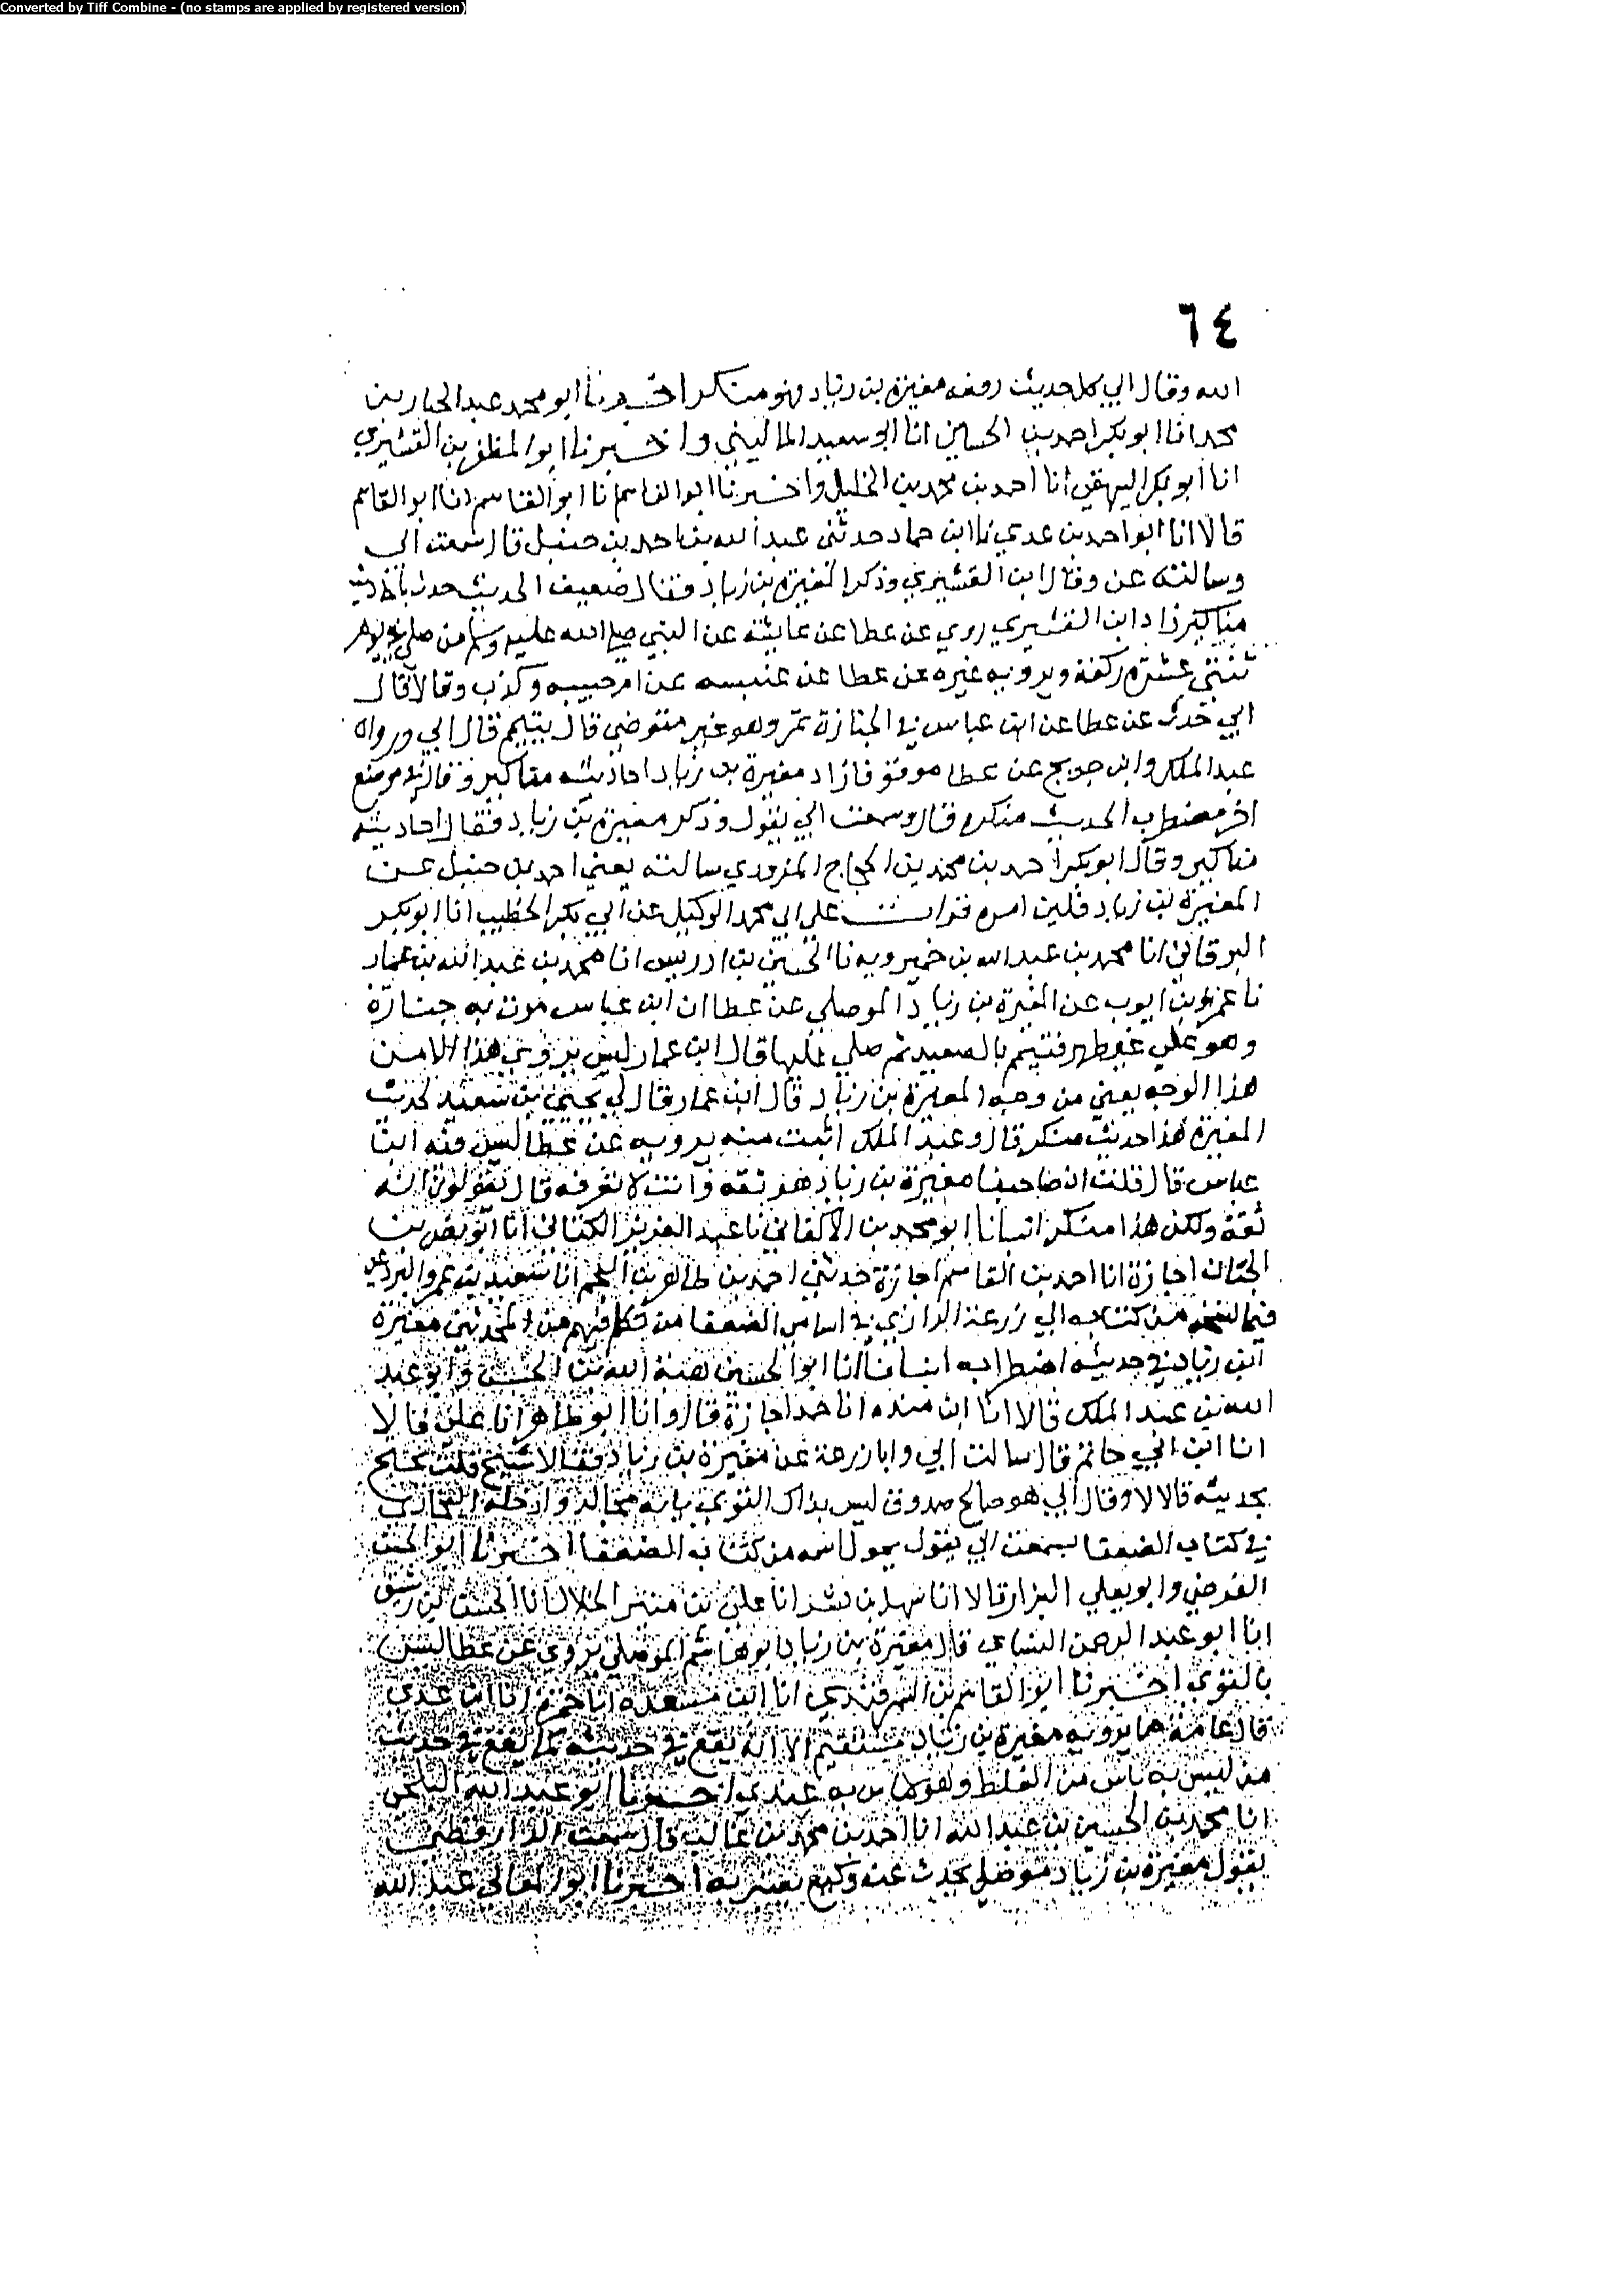 Converted by Tiff Combine - (no stamps are applied by registered version)
٦٤
الله وقال ابي كل حديث رفعه مغيرة بن زياد فهو منكر اخبرنا ابو محمد عبد الجبار بن
محمد انا ابو بكر احمد بن الحسين انا ابو سعيد الماليني واخبرنا ابو المظفر بن القشيري
انا ابو بكر البيهقي انا احمد بن محمد بن الخليل واخبرنا ابو القاسم نا ابو القاسم انا ابو القاسم
قالا انا ابو احمد بن عدي نا ابن حماد حدثني عبد الله بن احمد بن حنبل قال سمعت ابي
وسالته عن وقال ابن القشيري وذكر المغيرة بن زياد فقال ضعيف الحديث حدث باحاديث
مناكير زاد ابن القشيري روي عن عطا عن عايشة عن النبي صلى الله عليه وسلم من صلى في يوم
ثنتي عشرة ركعة ويرويه غيره عن عطا عن عنبسه عن ام حبيبه وكذب وقالا قال
ابي حدث عن عطا عن ابن عباس في الجنازة تمر وهو غير متوضي قال يتيمم قال ابي ورواه
عبد الملك وابن جريج عن عطا موقوفا زاد مغيرة بن زياد احاديثه مناكير وقال في موضع
اخر مضطرب الحديث منكره قال وسمعت ابي يقول وذكر مغيرة بن زياد فقال احاديثه
مناكير وقال ابو بكر احمد بن محمد بن الحجاج المروذي سالته يعني احمد بن حنبل عن
المغيرة بن زياد فلين امره قرات على ابي محمد الوكيل عن ابي بكر الخطيب انا ابو بكر
البرقاني انا محمد بن عبد الله بن خميرويه نا الحسين بن ادريس انا محمد بن عبد الله بن عمار
نا عمر بن ايوب عن المغيرة بن زياد الموصلي عن عطا ان ابن عباس مرت به جنازة
وهو على غير طهر فتيمم بالصعيد ثم صلى عليها قال ابن عمار ليس يروي هذا الا من
هذا الوجه يعني من وجه المغيرة بن زياد قال ابن عمار وقال لي يحيى بن سعيد لحديث
المغيرة هذا حديث منكر قال وعبد الملك اثبت منه يرويه عن عطا ليس فيه ابن
عباس قال قلت ان صاحبنا مغيرة بن زياد هو ثقة وانت لا تعرفه قال تقولون انه
ثقة ولكن هذا منكر انبانا ابو محمد بن الاكفاني نا عبد العزيز الكتاني انا ابو نصر بن
الجبان اجازة انا احمد بن القاسم اجازة حدثني احمد بن طاهر بن النجم انا سعيد بن عمرو البردعي
فيما نسخه من كتاب ابي زرعة الرازي في اسامي الضعفا من تكلم فيهم من المحدثين مغيرة
ابن زياد في حديثه اضطراب انبانا ابو الحسين هبة الله بن الحسن وابو عبد
الله بن عبد الملك قالا انا ابن منده انا حمد اجازة قال وانا ابو طاهر انا علي قالا
انا ابن ابي حاتم قال سالت ابي وابا زرعة عن مغيرة بن زياد فقالا شيخ قلت يحتج
بحديثه قالا لا وقال ابي هو صالح صدوق ليس بذاك القوي بابه مجالد وادخله البخاري
في كتاب الضعفا سمعت ابي يقول يحول اسمه من كتاب الضعفا اخبرنا ابو الحسن
الفرضي وابو يعلي البزار قالا انا سهل بن بشر انا علي بن منير الخلال انا الحسن بن رشيق
انا ابو عبد الرحمن النساي قال مغيرة بن زياد ابو هاشم الموصلي يروي عن عطا ليس
بالقوي اخبرنا ابو القاسم بن السمرقندي انا ابن مسعده انا حمزة انا ابن عدي
قال عامة ما يرويه مغيرة بن زياد مستقيم الا انه يقع في حديثه كما يقع في حديث
من ليس به باس من الغلط وهو لا باس به عندي اخبرنا ابو عبد الله البلخي
انا محمد بن الحسين بن عبد الله انا احمد بن محمد بن غالب قال سمعت الدارقطني
يقول مغيرة بن زياد موصلي يحدث عنه وكيع يعتبر به اخبرنا ابو المعالي عبد الله